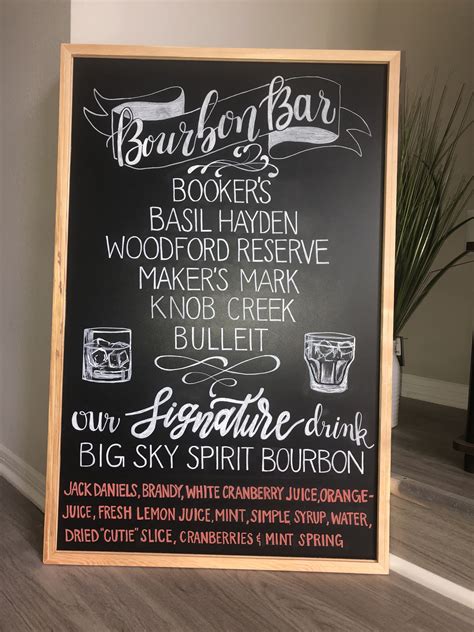 Bourbon Bar
BOOKER'S
BASIL HAYDEN
WOODFORD RESERVE
MAKER'S MARK
KNOB CREEK
BULLEIT
our Signature drink
BIG SKY SPIRIT BOURBON
JACK DANIELS, BRANDY, WHITE CRANBERRY JUICE, ORANGE-
JUICE, FRESH LEMON JUICE, MINT, SIMPLE SYRUP, WATER,
DRIED "CUTIE" SLICE, CRANBERRIES & MINT SPRING